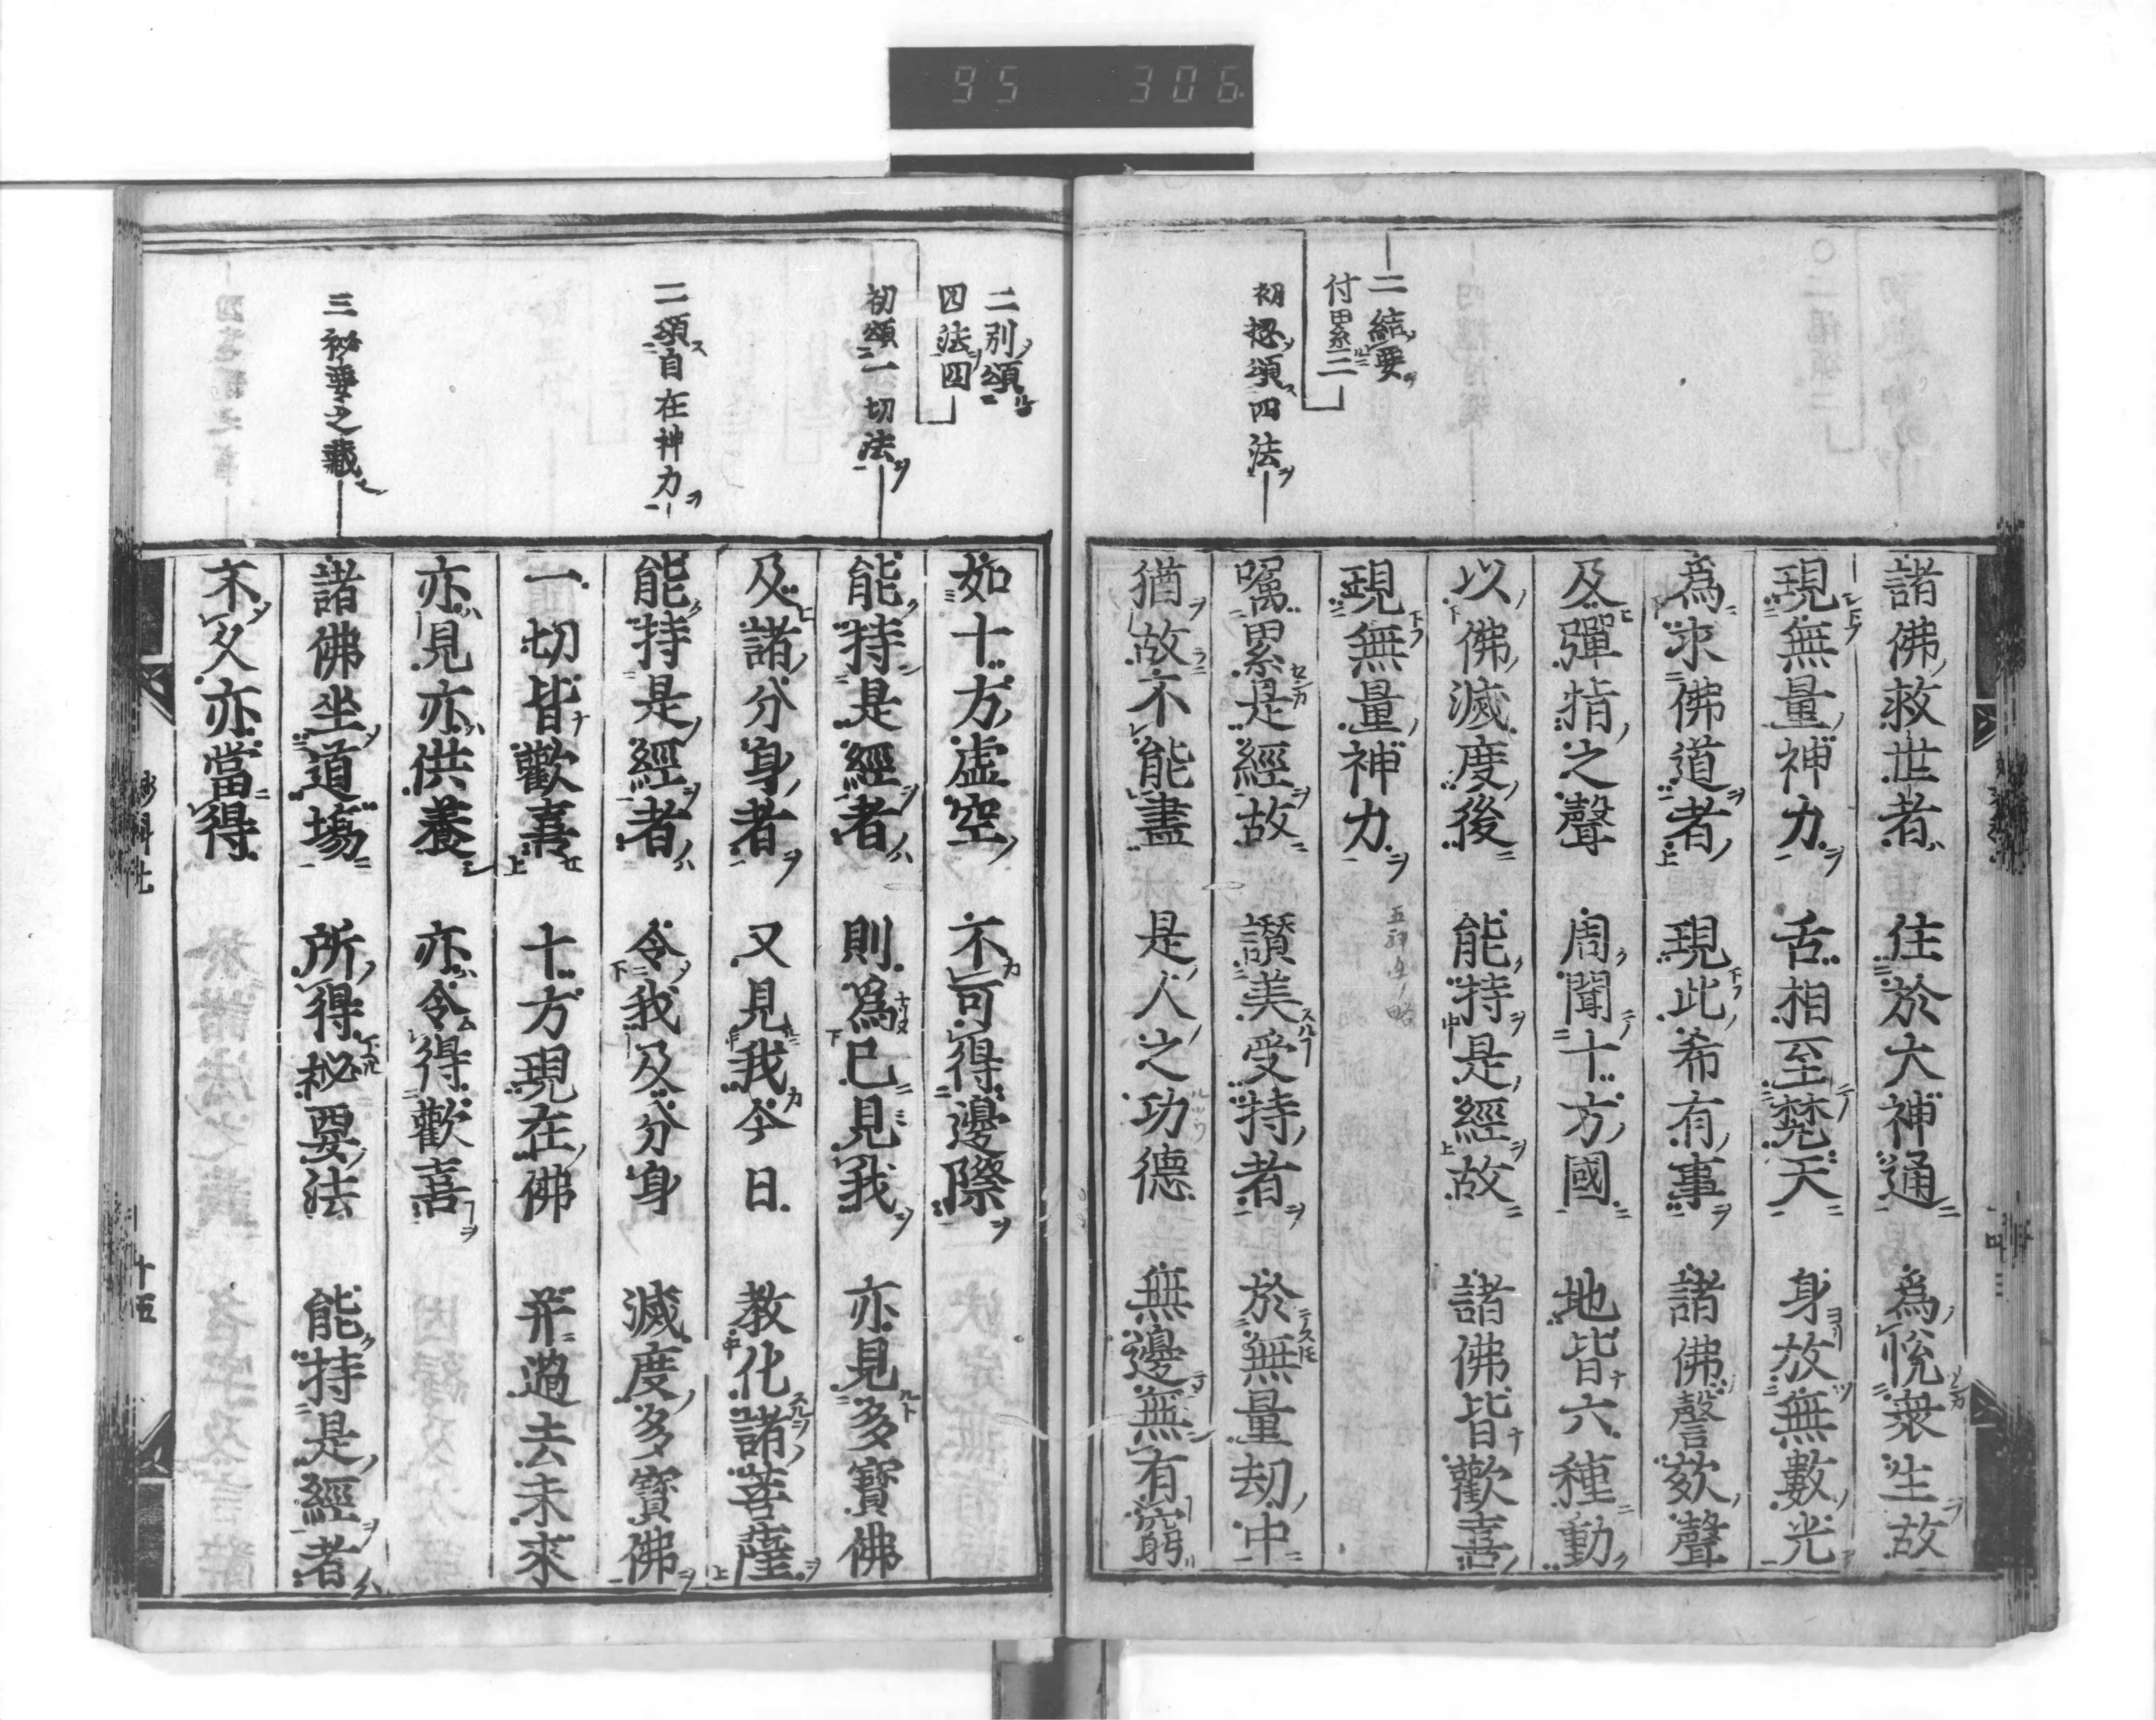 95 306
二結要
付累三
初摠頌四法
諸佛救世者 住於大神通 爲悅衆生故
現無量神力 舌相至梵天 身放無數光
爲求佛道者 現此希有事 諸佛謦欬聲
及彈指之聲 周聞十方國 地皆六種動
以佛滅度後 能持是經故 諸佛皆歡喜
現無量神力
囑累是經故 讃美受持者 於無量劫中
猶故不能盡 是人之功德 無邊無有窮
二別頌
四法四
初頌一切法
二頌自在神力
三祕要之藏
如十方虛空 不可得邊際
能持是經者 則爲已見我 亦見多寶佛
及諸分身者 又見我今日 教化諸菩薩
能持是經者 令我及分身 滅度多寶佛
一切皆歡喜 十方現在佛 并過去未來
亦見亦供養 亦令得歡喜
諸佛坐道場 所得祕要法 能持是經者
不久亦當得
十五